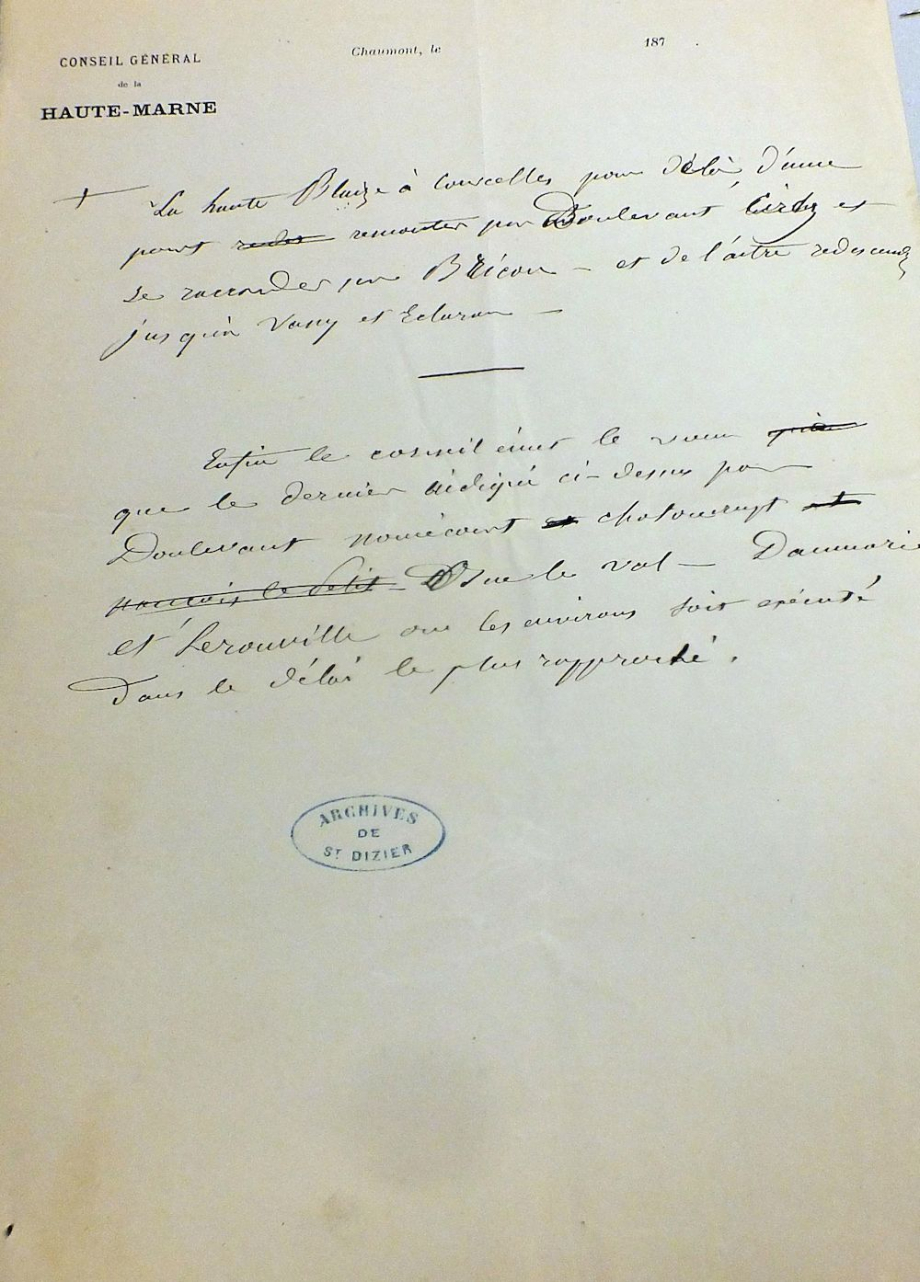 CONSEIL GÉNÉRAL
de la
HAUTE-MARNE
Chaumont, le 187 .
+ La haute Blaize à Courcelles pour de là d'une
part remonter par Doulevant Cirey et
se raccorder par Bricon – et de l'autre redescendre
jusqu'à Vassy et Eclaron –
Enfin le conseil émet le voeu
que le dernier indiqué ci-dessus par
Doulevant nomécourt chatonrupt
– Osne le val – Dammarie
et Lerouville ou les environs soit exécuté
Dans le délai le plus rapproché.
ARCHIVES
DE
ST DIZIER